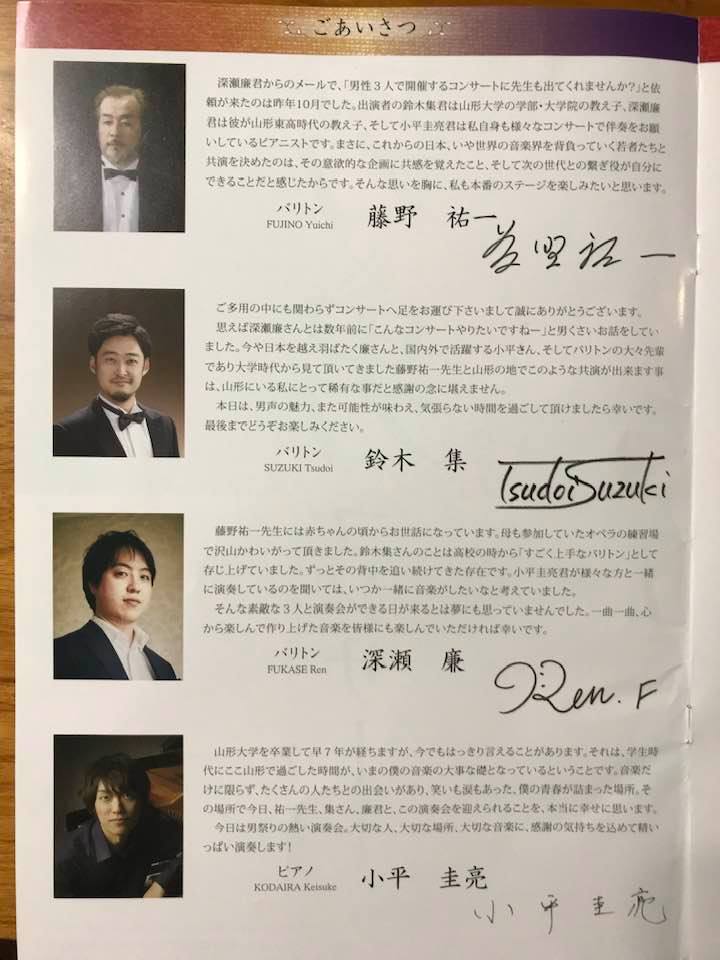 ごあいさつ
深瀬廉君からのメールで、「男性３人で開催するコンサートに先生も出てくれませんか？」と依
頼が来たのは昨年10月でした。出演者の鈴木集君は山形大学の学部・大学院の教え子、深瀬廉
君は彼が山形東高時代の教え子、そして小平圭亮君は私自身も様々なコンサートで伴奏をお願
いしているピアニストです。まさに、これからの日本、いや世界の音楽界を背負っていく若者たちと
共演を決めたのは、その意欲的な企画に共感を覚えたこと、そして次の世代との繋ぎ役が自分に
できることだと感じたからです。そんな思いを胸に、私も本番のステージを楽しみたいと思います。
バリトン
FUJINO Yuichi
藤野 祐一
藤野祐一
ご多用の中にも関わらずコンサートへ足をお運び下さいまして誠にありがとうございます。
思えば深瀬廉さんとは数年前に「こんなコンサートやりたいですねー」と男くさいお話をしてい
ました。今や日本を越え羽ばたく廉さんと、国内外で活躍する小平さん、そしてバリトンの大々先輩
であり大学時代から見て頂いてきました藤野祐一先生と山形の地でこのような共演が出来ます事
は、山形にいる私にとって稀有な事だと感謝の念に堪えません。
本日は、男声の魅力、また可能性が味わえ、気張らない時間を過ごして頂けましたら幸いです。
最後までどうぞお楽しみください。
バリトン
SUZUKI Tsudoi
鈴木 集
TsudoiSuzuki
藤野祐一先生には赤ちゃんの頃からお世話になっています。母も参加していたオペラの練習場
で沢山かわいがって頂きました。鈴木集さんのことは高校の時から「すごく上手なバリトン」として
存じ上げていました。ずっとその背中を追い続けてきた存在です。小平圭亮君が様々な方と一緒
に演奏しているのを聞いては、いつか一緒に音楽がしたいなと考えていました。
そんな素敵な３人と演奏会ができる日が来るとは夢にも思っていませんでした。一曲一曲、心
から楽しんで作り上げた音楽を皆様にも楽しんでいただければ幸いです。
バリトン
FUKASE Ren
深瀬 廉
Ren. F
山形大学を卒業して早７年が経ちますが、今でもはっきり言えることがあります。それは、学生時
代にここ山形で過ごした時間が、いまの僕の音楽の大事な礎となっているということです。音楽だ
けに限らず、たくさんの人たちとの出会いがあり、笑いも涙もあった、僕の青春が詰まった場所。そ
の場所で今日、祐一先生、集さん、廉君と、この演奏会を迎えられることを、本当に幸せに思います。
今日は男祭りの熱い演奏会。大切な人、大切な場所、大切な音楽に、感謝の気持ちを込めて精い
っぱい演奏します！
ピアノ
KODAIRA Keisuke
小平 圭亮
小平圭亮